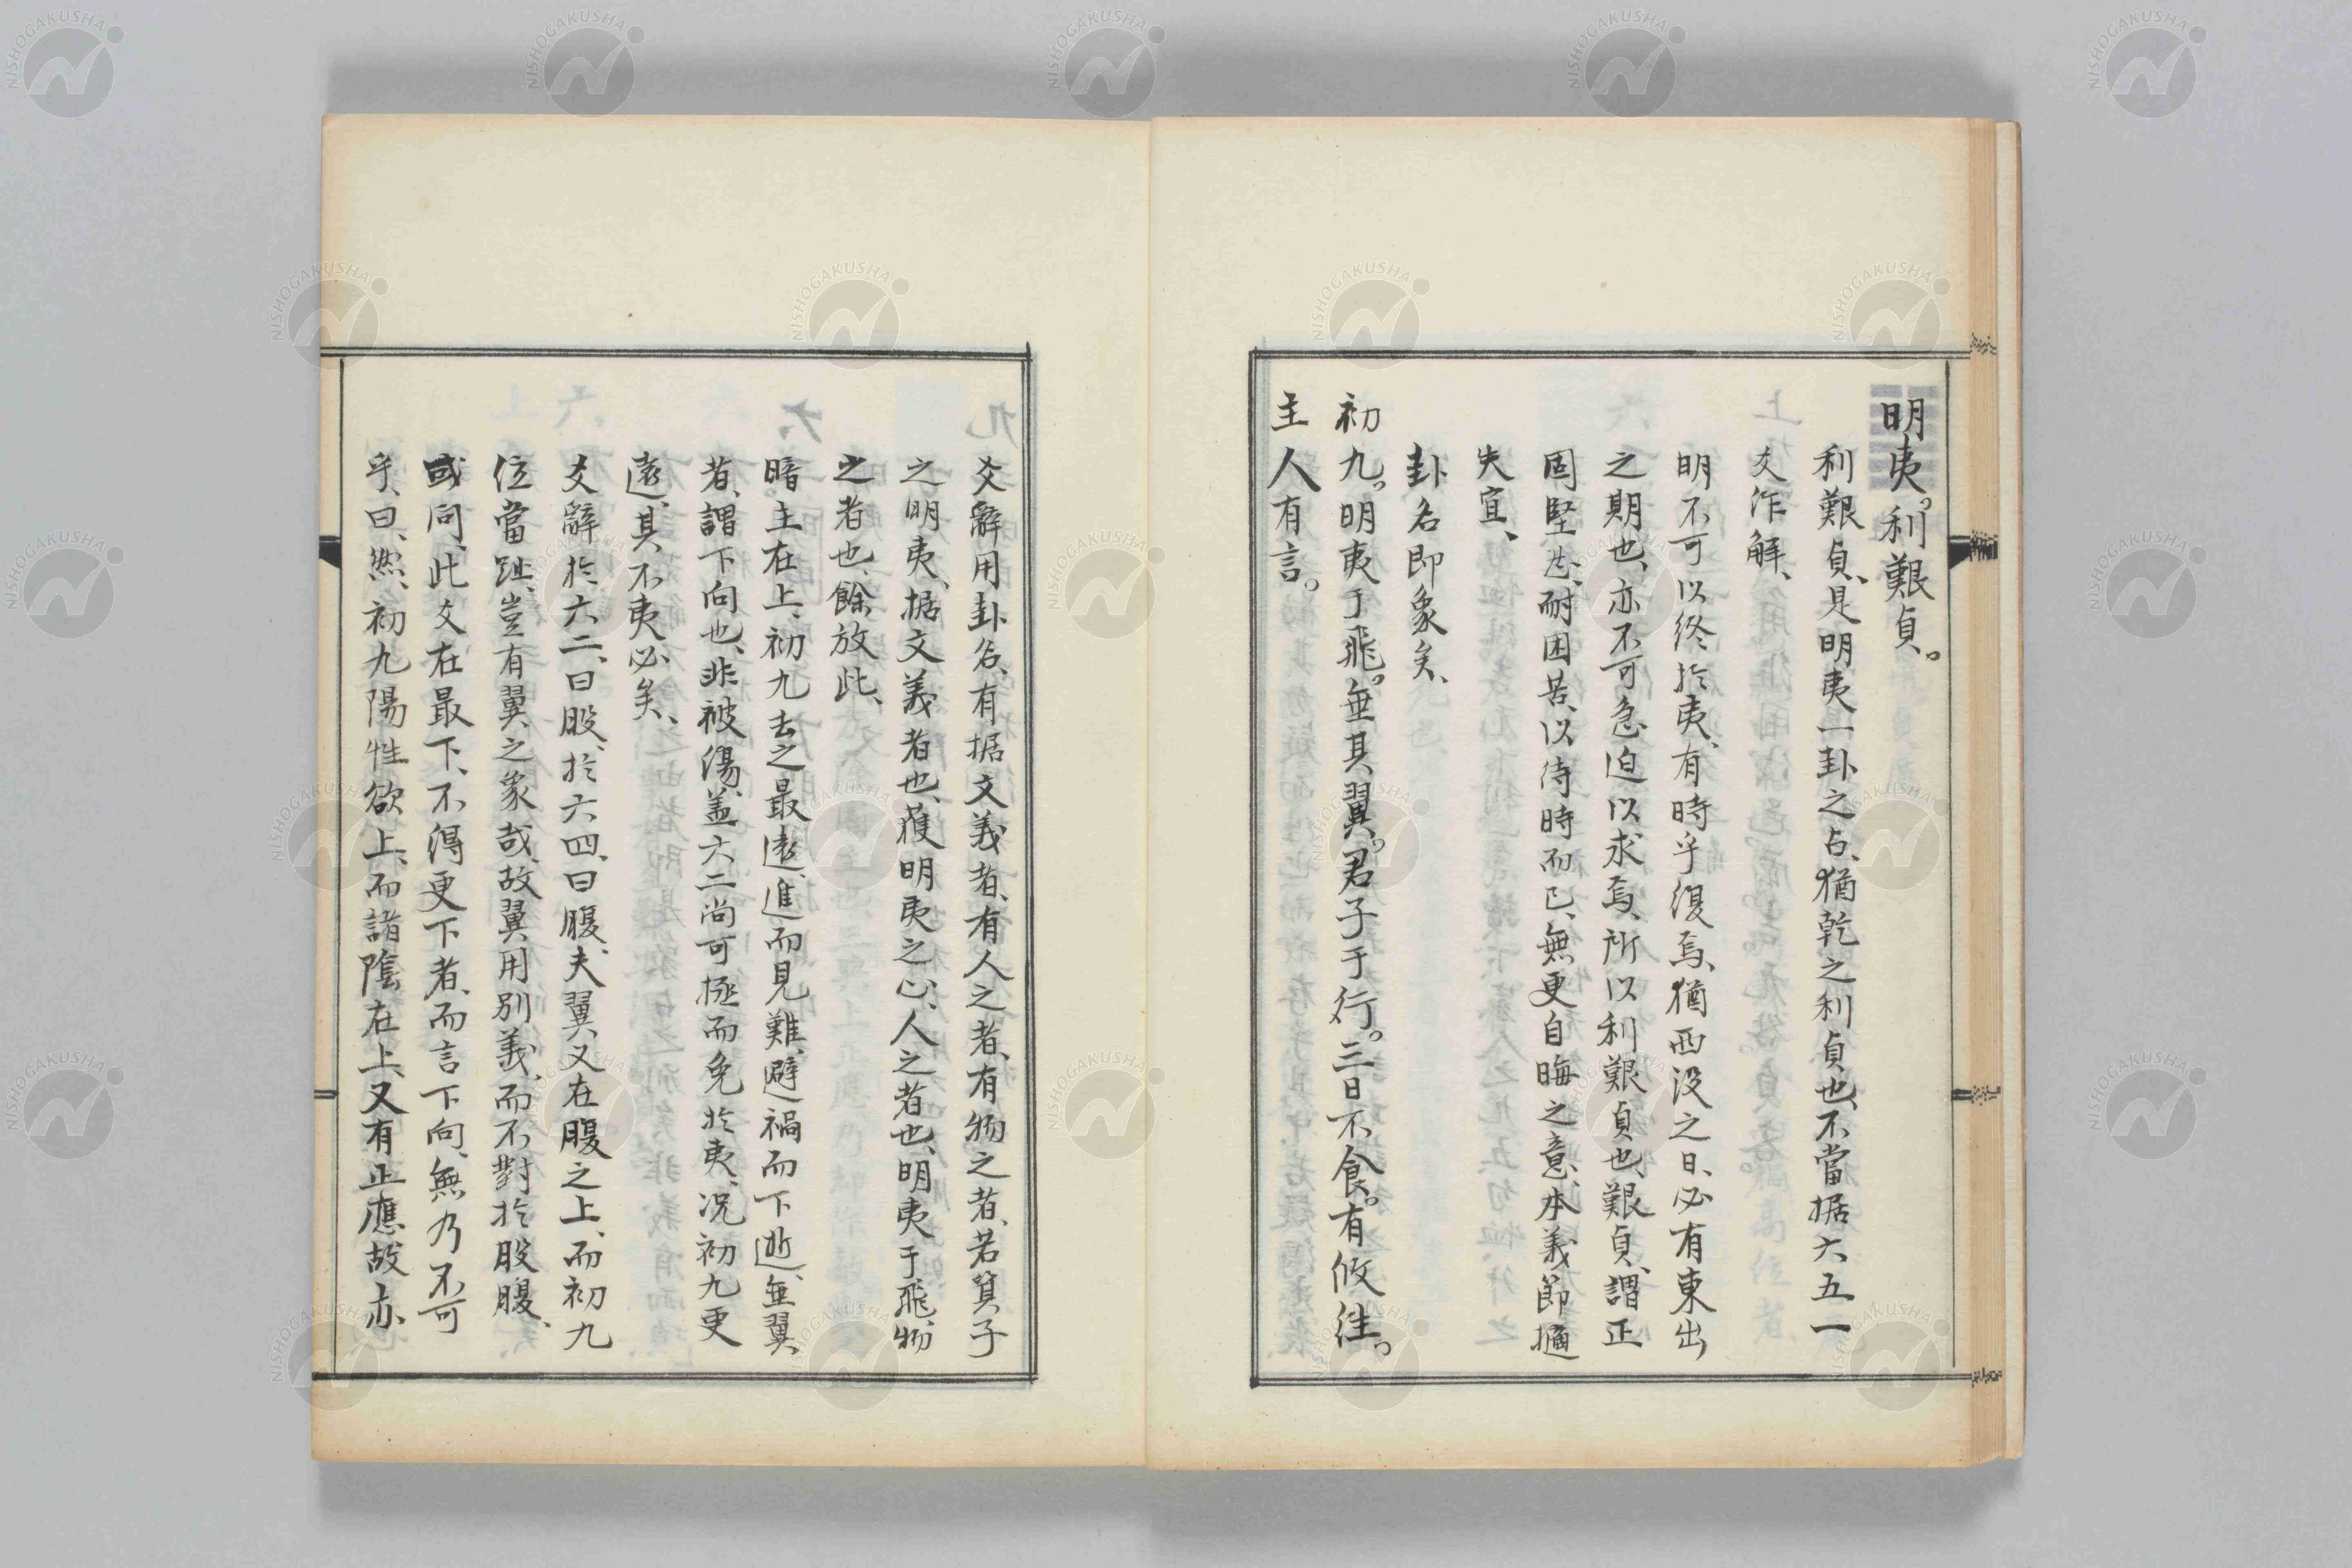 明夷。利艱貞。
利艱貞、是明夷一卦之占、猶乾之利貞也、不當据六五一
爻作解、
明不可以終於夷、有時乎復焉、猶西没之日、必有東出
之期也、亦不可急迫以求焉、所以利艱貞也、艱貞、謂正
固堅忍、耐困苦、以待時而已、無更自晦之意、本義節擿
失宜、
卦名即象矣、
初九。明夷于飛。垂其翼。君子于行。三日不食。有攸往。
主人有言。
爻辭用卦名、有据文義者、有人之者、有物之者、若箕子
之明夷、据文義者也、獲明夷之心、人之者也、明夷于飛、物
之者也、餘放此、
暗主在上、初九去之最遠、進而見難、避禍而下逝、垂翼
者、謂下向也、非被傷、盖六二尚可拯而免於夷、况初九更
遠、其不夷必矣、
爻辭於六二、曰股、於六四、曰腹、夫翼又在腹之上、而初九
位當趾、豈有翼之象哉、故翼用別義、而不對於股腹、
或問、此爻在最下、不得更下者、而言下向、無乃不可
乎、曰、然、初九陽性欲上、而諸陰在上、又有正應、故亦
NISHOGAKUSHA